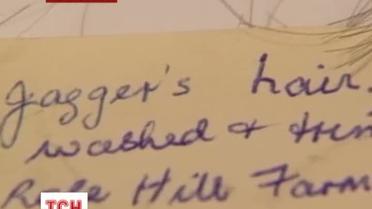 Jagger's hair.
washed &
Hill Farm
ТСН